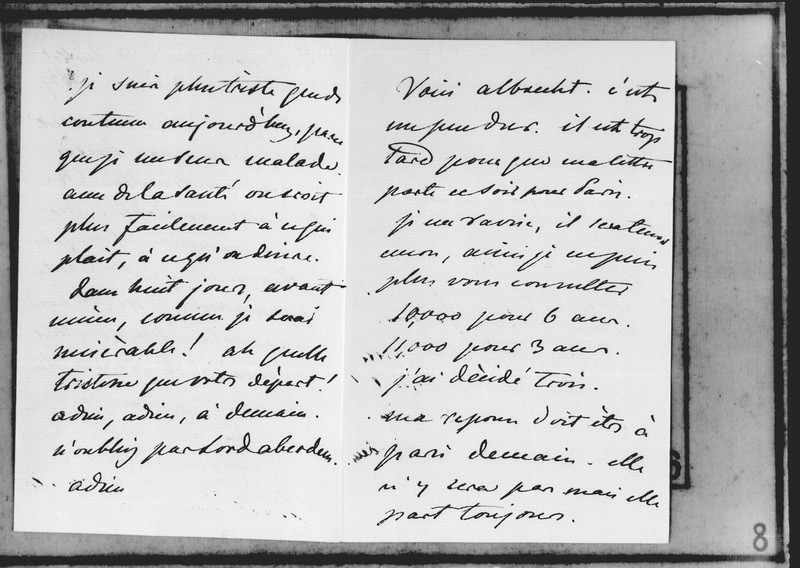 je suis plus triste que de
coutume aujourd'huy, parce
que je me sens malade.
avec de la santé on croit
plus facilement à ce qui
plait, à ce qu'on désire.
Dans huit jours, avant
même, comme je serai
misèrable! ah quelle
tristesse que votre départ!
adieu, adieu, à demain.
n'oubliez pas Lord aberdeen.
adieu
Voici albrecht. c'est
un peu dur. il est trop
tard pour que ma lettre
parte ce soir pour Paris.
je me ravise, il sera
non, ainsi je ne puis
plus vous consulter
10,000 pour 6 ans.
11,000 pour 3 ans.
j'ai dècidé trois.
ma reponse doit être à
paris demain. elle
n'y sera pas mais elle
part toujours.
8